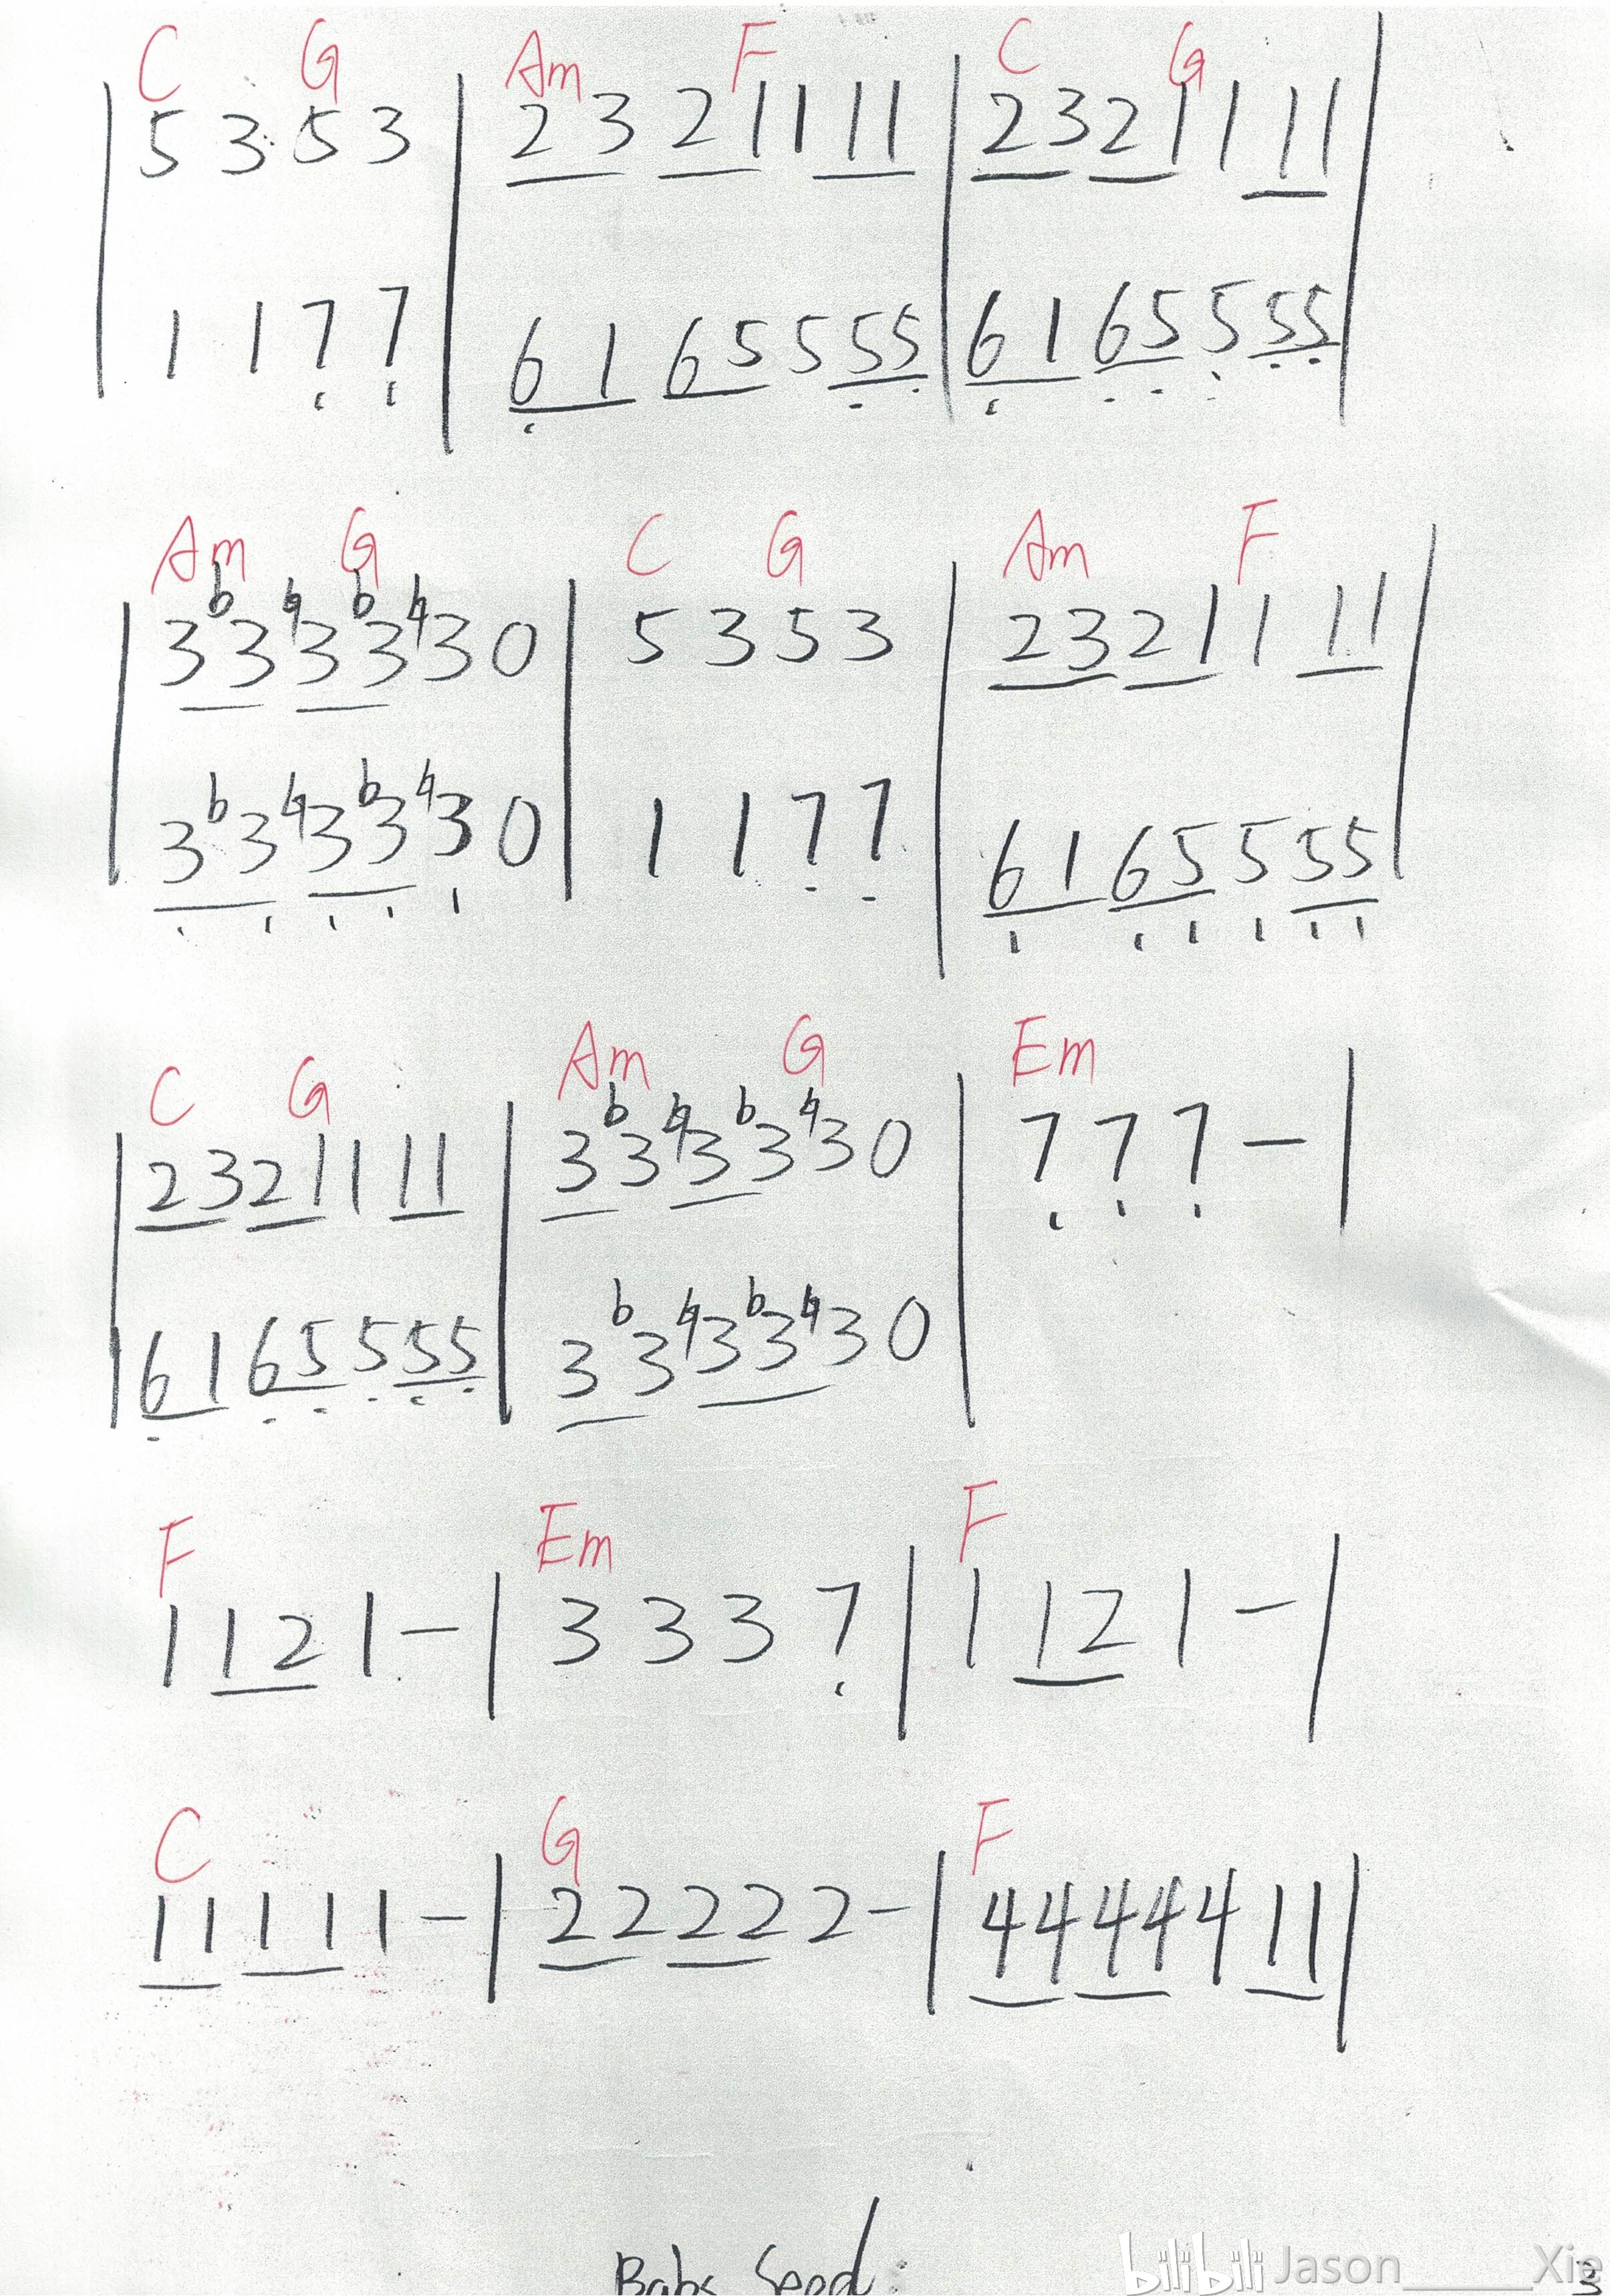 C G Am F C G
| 5 3 5 3 | 2 3 2 1 1 1 1 | 2 3 2 1 1 1 1 |
| 1 1 7 7 | 6 1 6 5 5 5 5 | 6 1 6 5 5 5 5 |
Am G C G Am F
| 3 b3 ♮3 b3 ♮3 0 | 5 3 5 3 | 2 3 2 1 1 1 1 |
| 3 b3 ♮3 b3 ♮3 0 | 1 1 7 7 | 6 1 6 5 5 5 5 |
C G Am G Em
| 2 3 2 1 1 1 1 | 3 b3 ♮3 b3 ♮3 0 | 7 7 7 – |
| 6 1 6 5 5 5 5 | 3 b3 ♮3 b3 ♮3 0 |
F Em F
1 1 2 1 – | 3 3 3 7 | 1 1 2 1 – |
C G F
1 1 1 1 1 – | 2 2 2 2 2 – | 4 4 4 4 4 1 1 |
Babs Seed
bilibili Jason____Xie